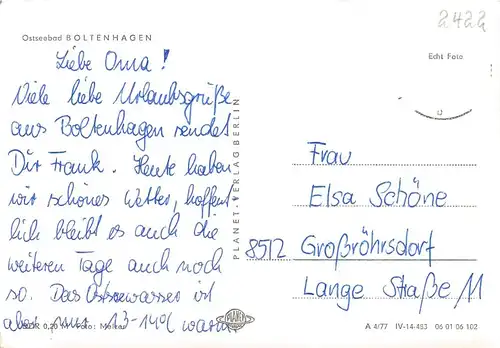 2422
Ostseebad BOLTENHAGEN
Echt Foto
Liebe Oma!
Viele liebe Urlaubsgrüße
aus Boltenhagen sendet
Dir Frank. Heute haben
wir schönes Wetter, hoffent
lich bleibt es auch die
weiteren Tage auch noch
so. Das Ostseewasser ist
aber nur 13-14°C warm
PLANET-VERLAG BERLIN
Frau
Elsa Schöne
8512 Großröhrsdorf
Lange Straße 11
0,20 M Foto:
PLANET
A 4/77 IV-14-483 06 01 06 102